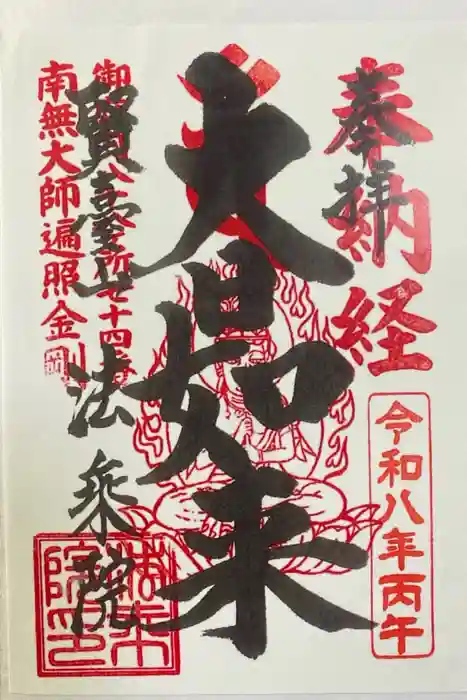 奉拝
奉納経
令和八年丙午
大日如来
御府内八十八ヶ所七十四番
南無大師遍照金剛
賢臺山
法乗院
法乗院印